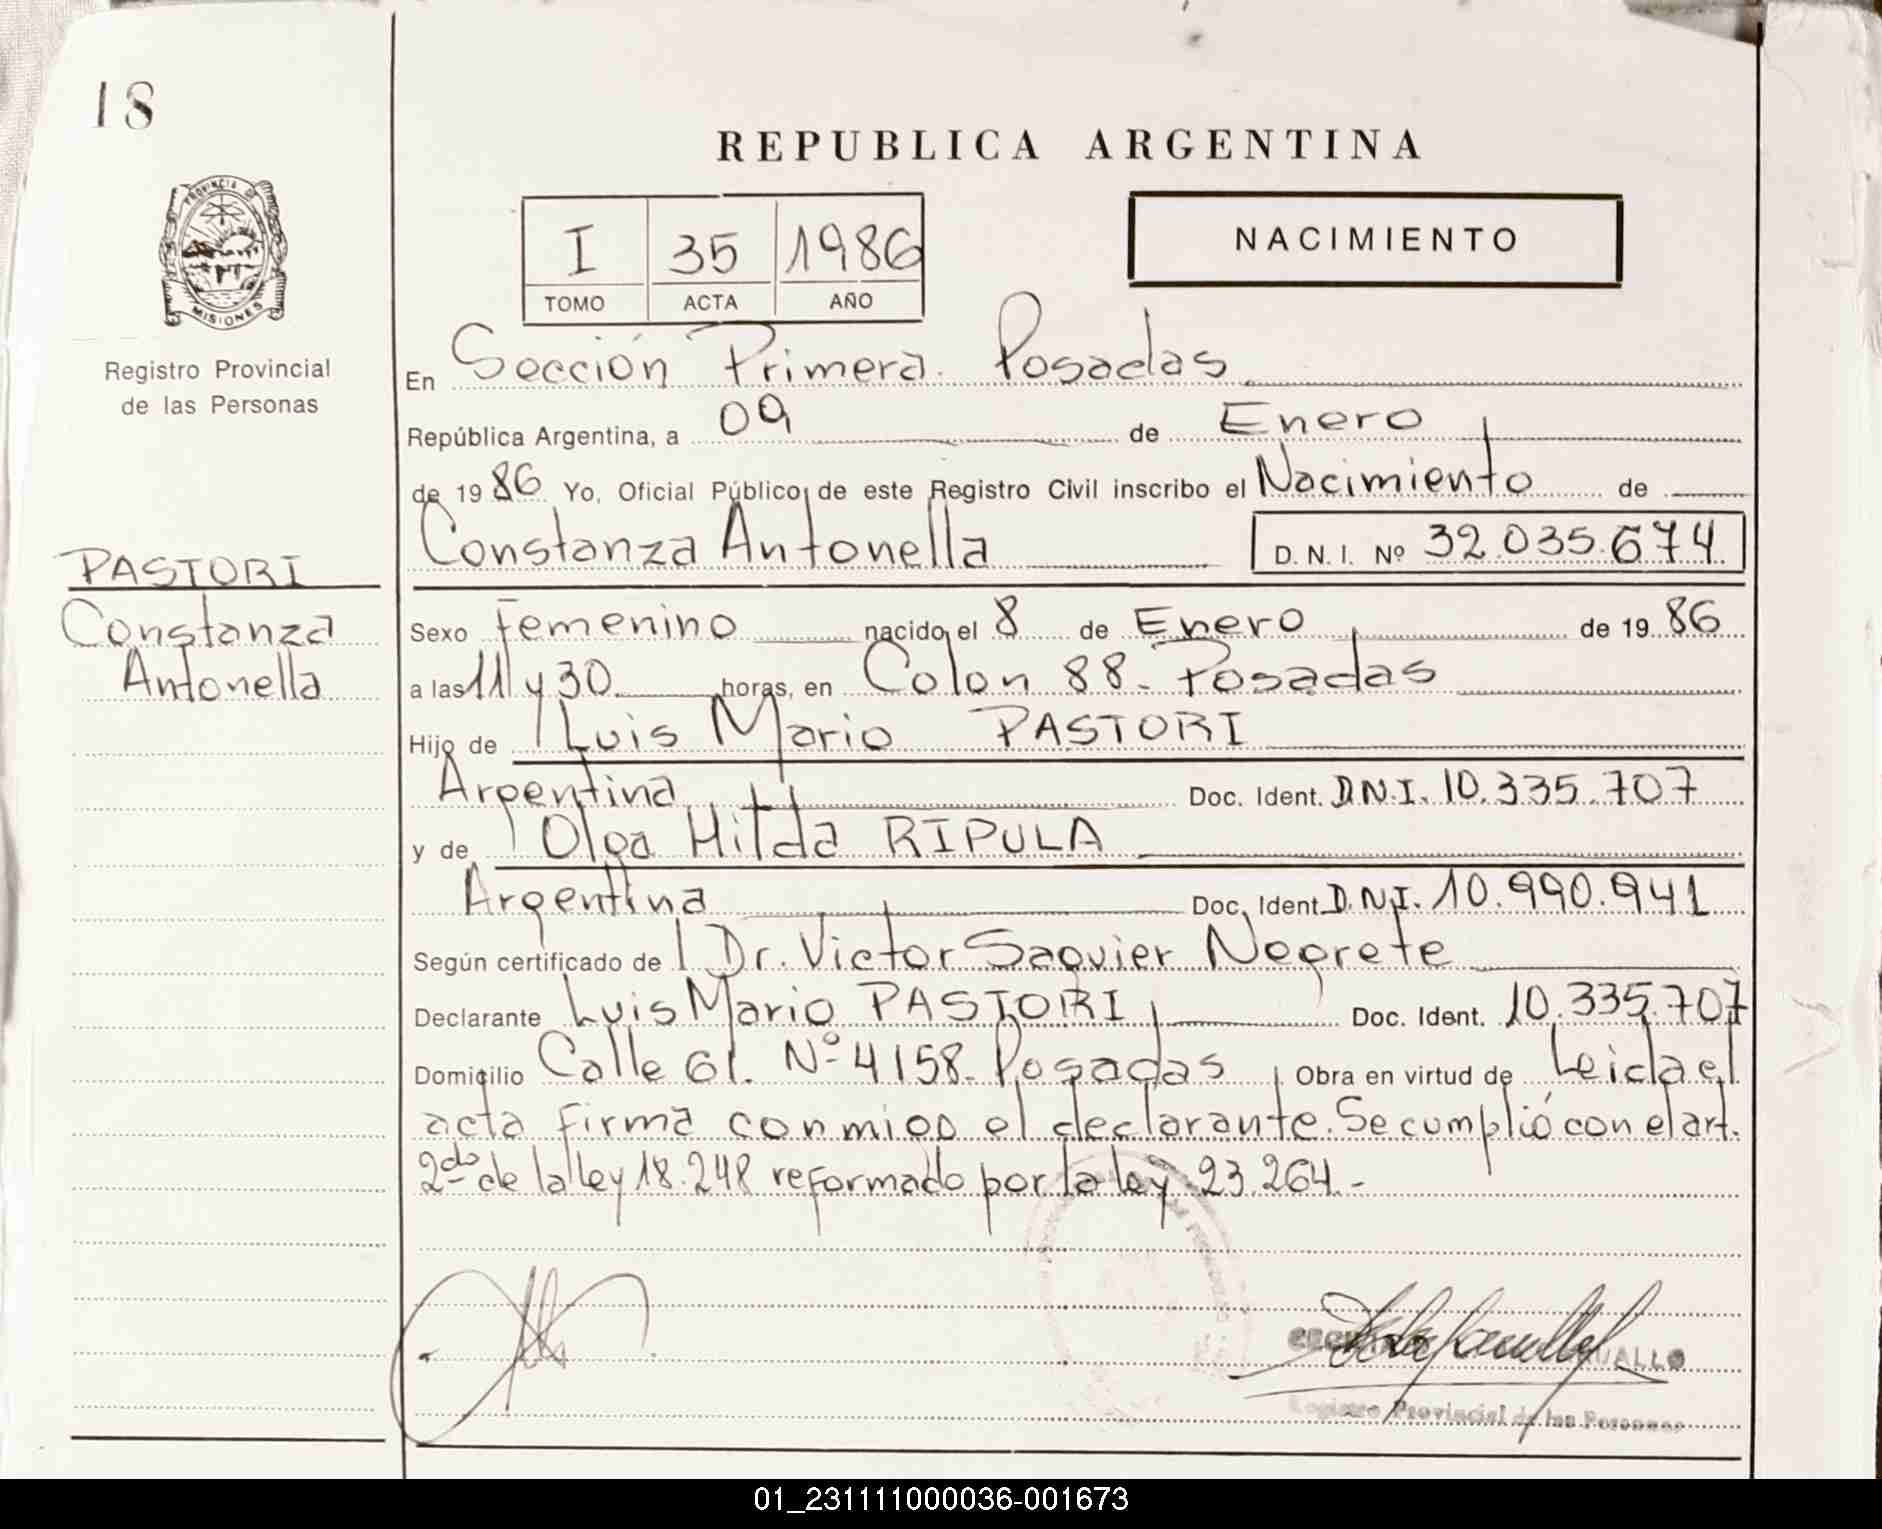 18
PROVINCIA DE
MISIONES
Registro Provincial
de las Personas
PASTORI
Constanza
Antonella
REPUBLICA ARGENTINA
I 35 1986
TOMO ACTA AÑO
NACIMIENTO
En Sección Primera. Posadas
República Argentina, a 09 de Enero
de 1986 Yo, Oficial Público de este Registro Civil inscribo el Nacimiento de
Constanza Antonella D. N. I. Nº 32.035.674
Sexo Femenino nacido el 8 de Enero de 1986
a las 11 y 30 horas, en Colon 88- Posadas
Hijo de Luis Mario PASTORI
Argentina Doc. Ident. D.N.I. 10.335.707
y de Olga Hilda RIPULA
Argentina Doc. Ident. D.N.I. 10.990.941
Según certificado de Dr. Victor Saguier Negrete
Declarante Luis Mario PASTORI Doc. Ident. 10.335.707
Domicilio Calle 61. Nº 4158- Posadas Obra en virtud de Leida el
acta firma conmigo el declarante. Se cumplió con el art.
2do de la ley 18.248 reformado por la ley 23.264.-
Registro Provincial de las Personas
01_231111000036-001673